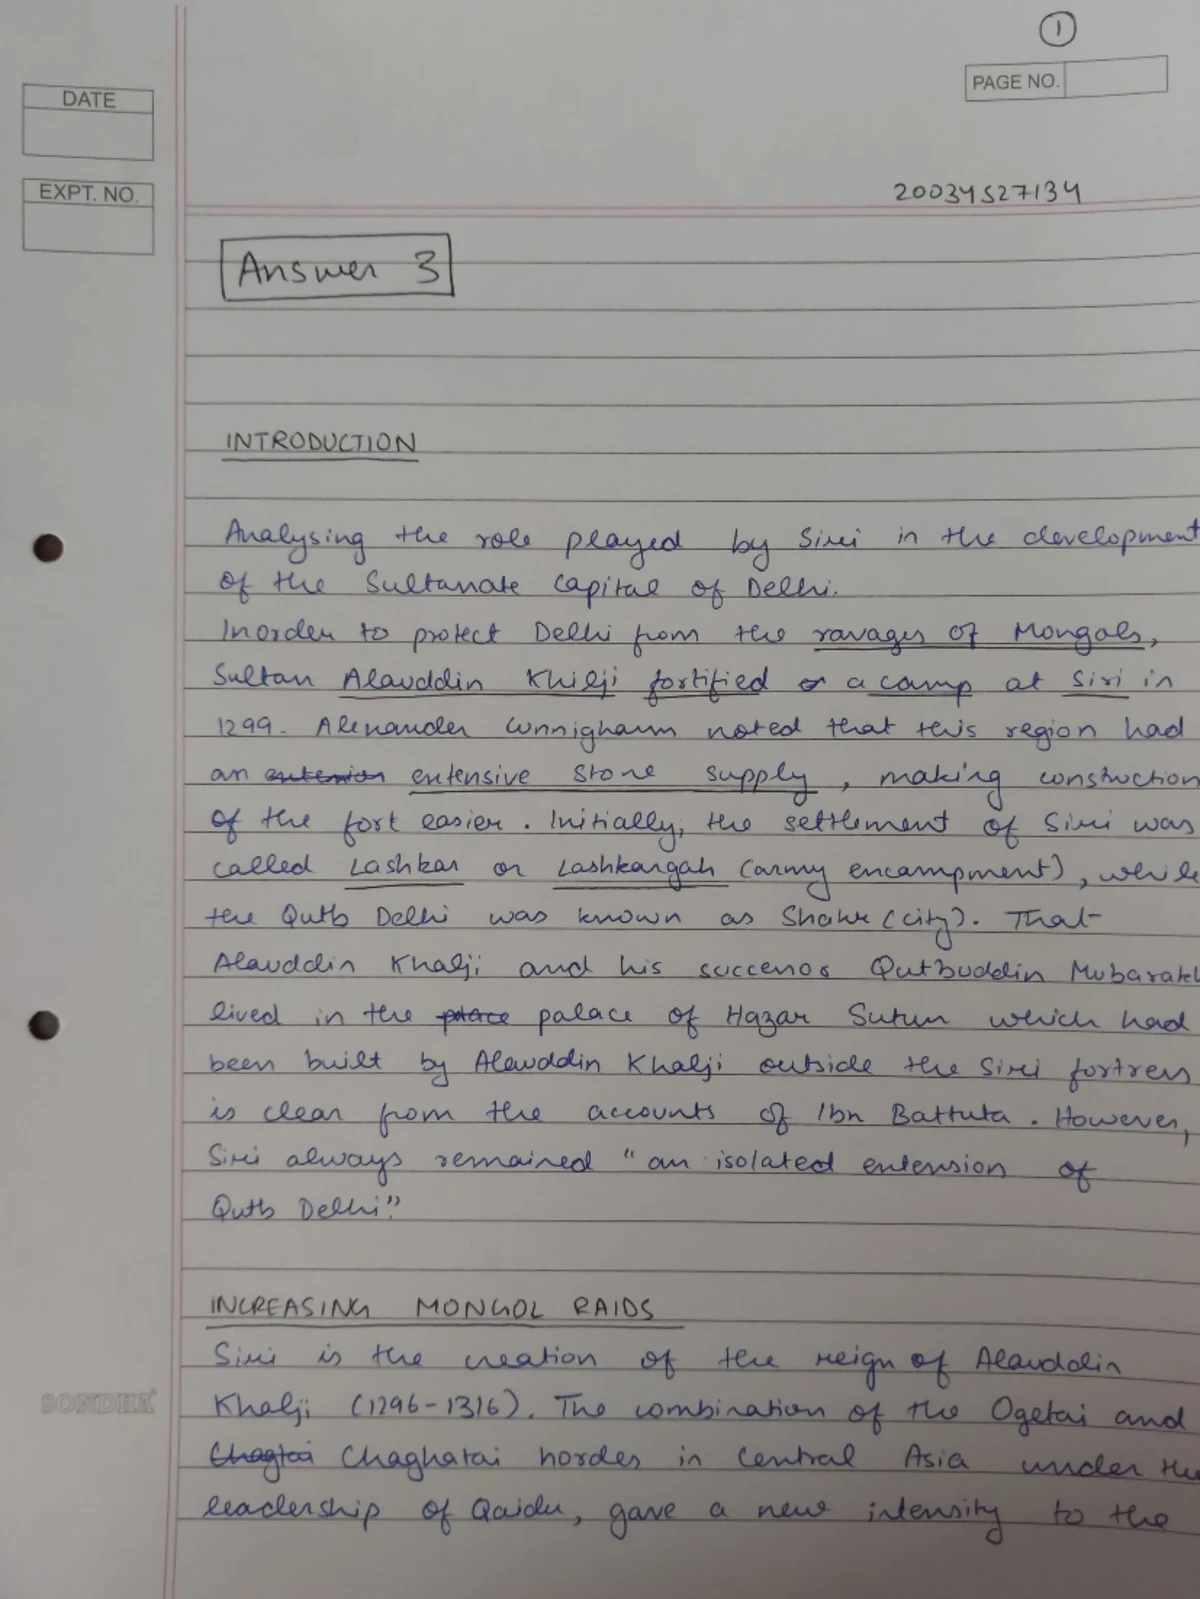 1
PAGE NO.
DATE
EXPT. NO.
20034527134
Answer 3
INTRODUCTION
Analysing the role played by Siri in the development
of the Sultanate Capital of Delhi.
Inorder to protect Delhi from the ravages of Mongols,
Sultan Alauddin Khilji fortified a camp at Siri in
1299. Alexander Cunnigham noted that this region had
an extension extensive stone supply, making construction
of the fort easier. Initially, the settlement of Siri was
called Lashkar or Lashkargah (army encampment), while
the Qutb Delhi was known as Shahr (city). That
Alauddin Khalji and his successos Qutbuddin Mubarak
lived in the place palace of Hazar Sutun which had
been built by Alauddin Khalji outside the Siri fortress
is clear from the accounts of Ibn Battuta. However,
Siri always remained "an isolated extension of
Qutb Delhi".
INCREASING MONGOL RAIDS
Siri is the creation of the reign of Alauddin
Khalji (1296-1316). The combination of the Ogetai and
Chagtai Chaghatai hordes in Central Asia under the
leadership of Qaidu, gave a new intensity to the
SONDHA